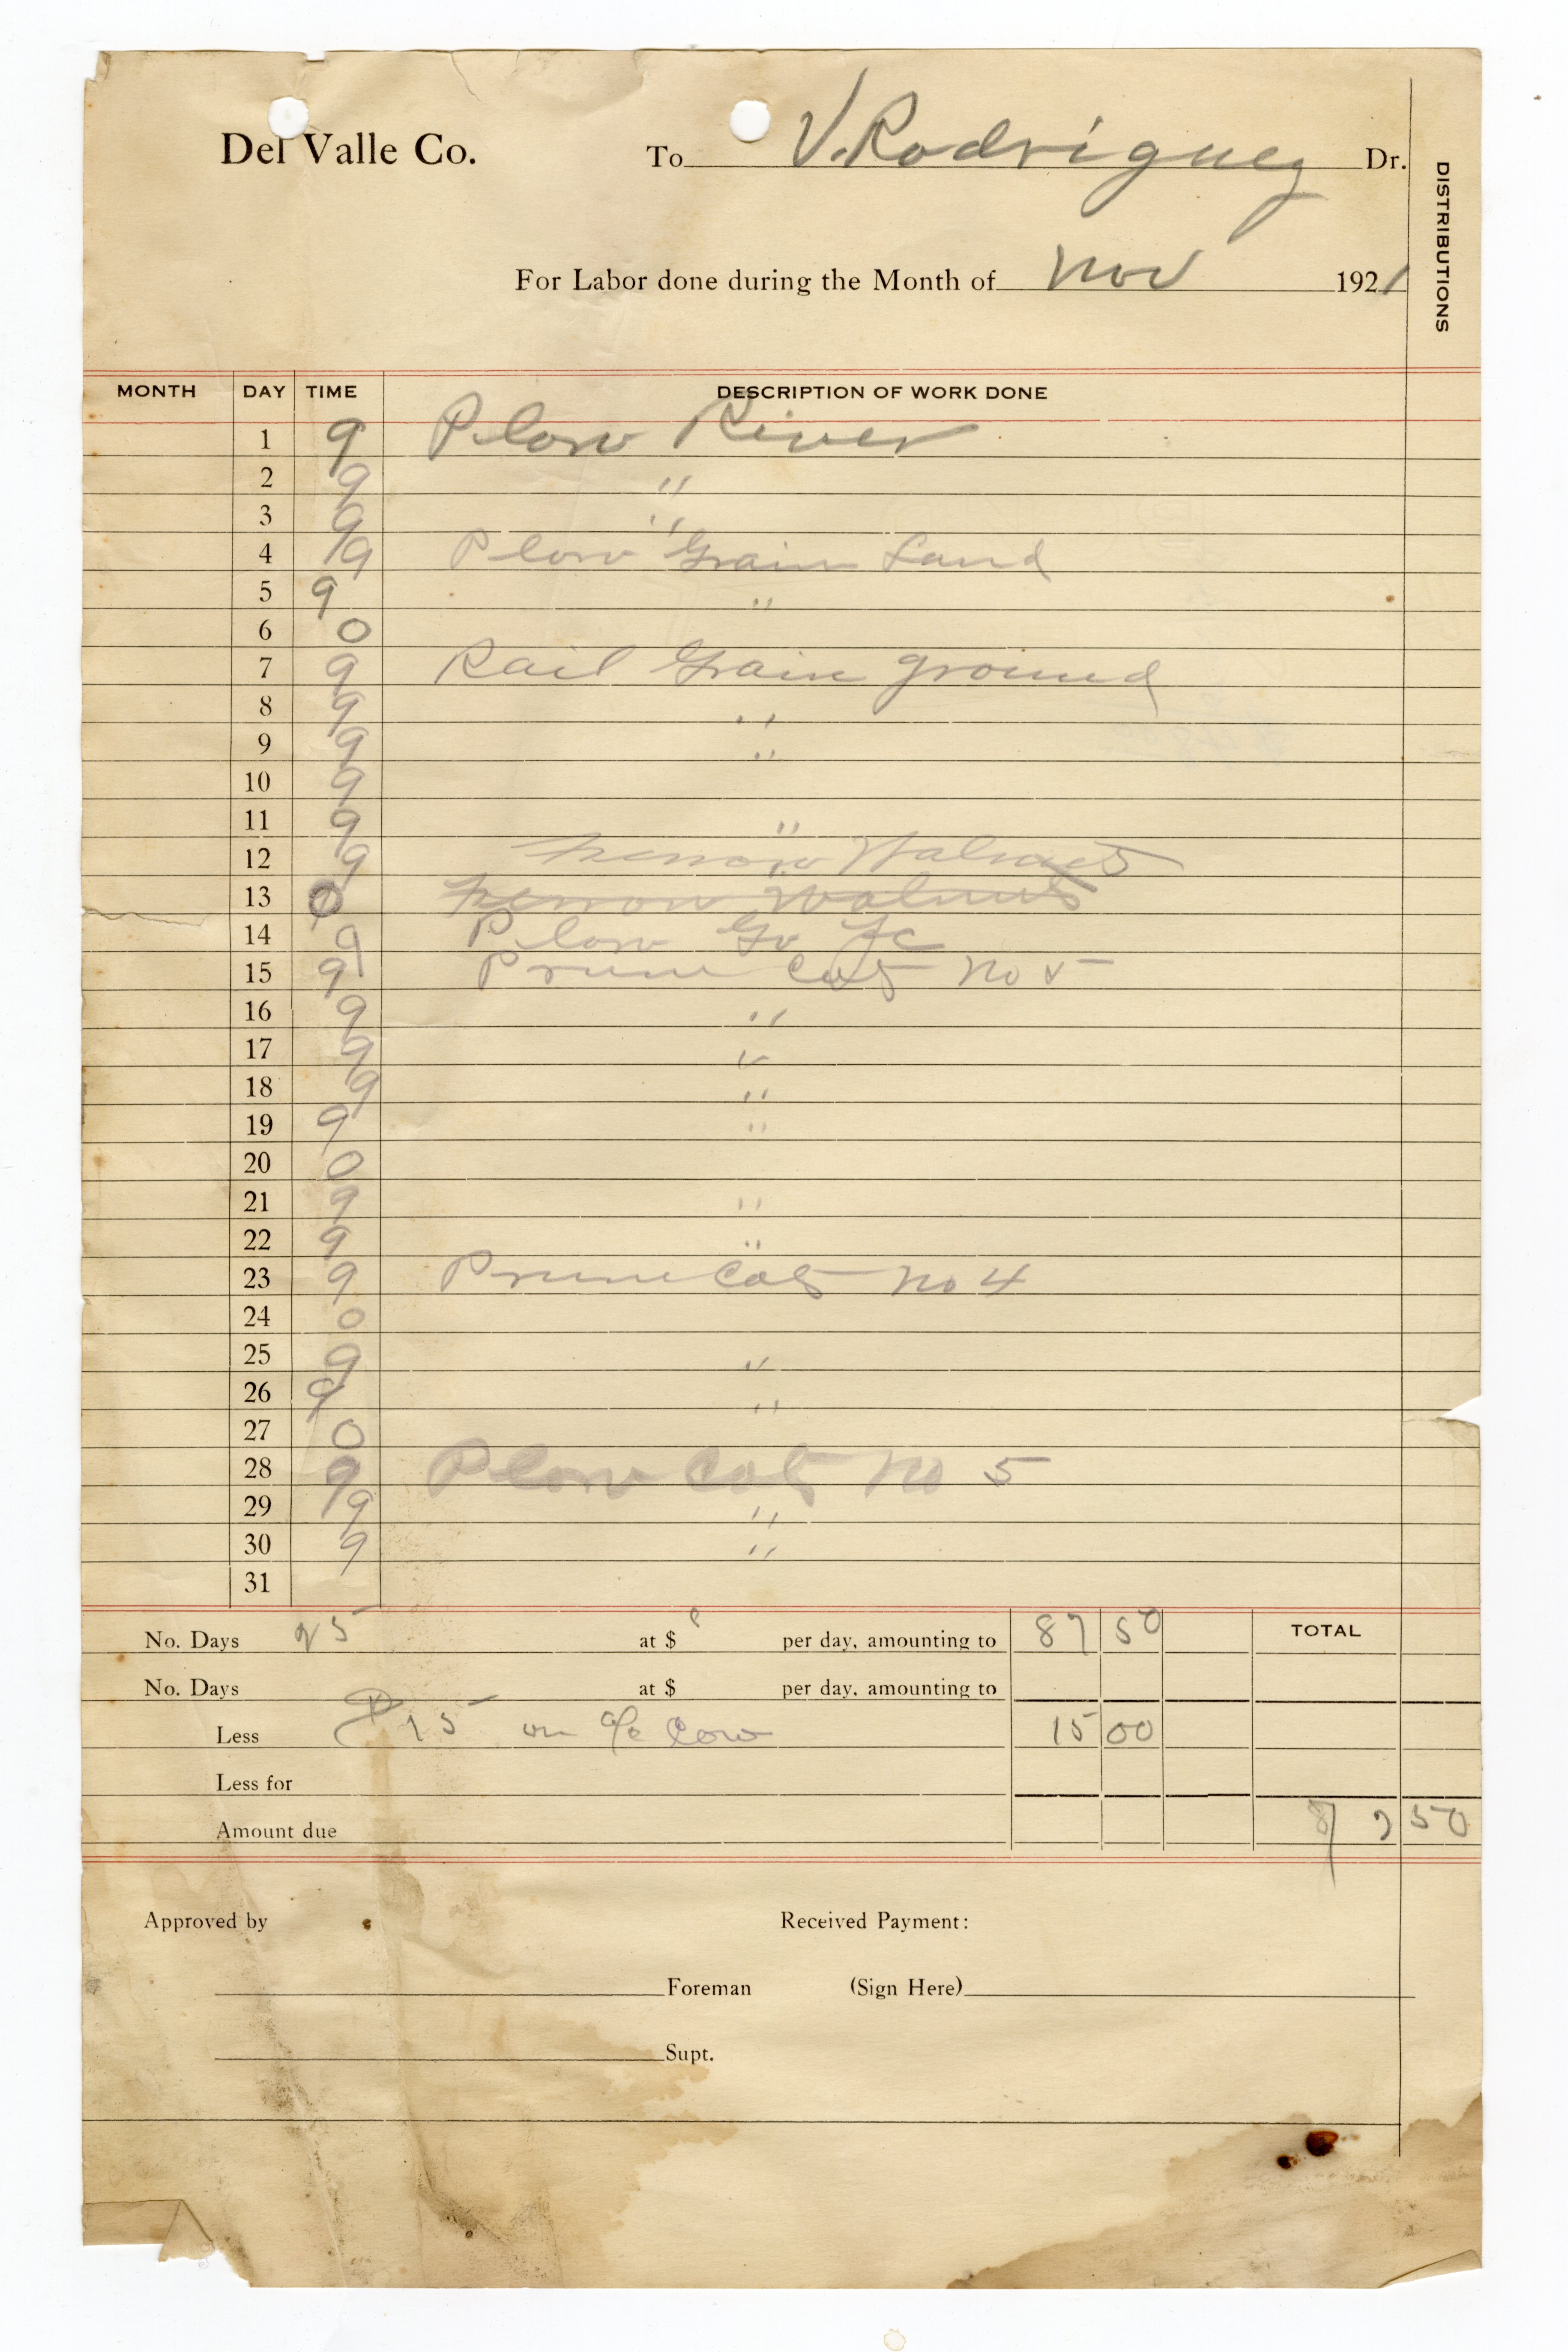 Del Valle Co. To V. Rodriguez Dr.
DISTRIBUTIONS
For Labor done during the Month of Nov 1921
MONTH DAY TIME DESCRIPTION OF WORK DONE
1 9 Plow River
2 9 "
3 9 "
4 9 Plow Grain Land
5 9 "
6 0
7 9 Rail Grain ground
8 9 "
9 9 "
10 9
11 9 "
12 9 Walnuts
13 0 Walnuts
14 9 Plow
15 9 Prune Cots No 5
16 9 "
17 9 "
18 9 "
19 9 "
20 0
21 9 "
22 9 "
23 9 Prune Cots No 4
24 0
25 9 "
26 9 "
27 0
28 9 Plow Cots No 5
29 9 "
30 9 "
31
No. Days 25 at $ per day, amounting to 87 50 TOTAL
No. Days at $ per day, amounting to
Less 15 on a/c Cow 15 00
Less for
Amount due 72 50
Approved by Received Payment:
Foreman (Sign Here)
Supt.